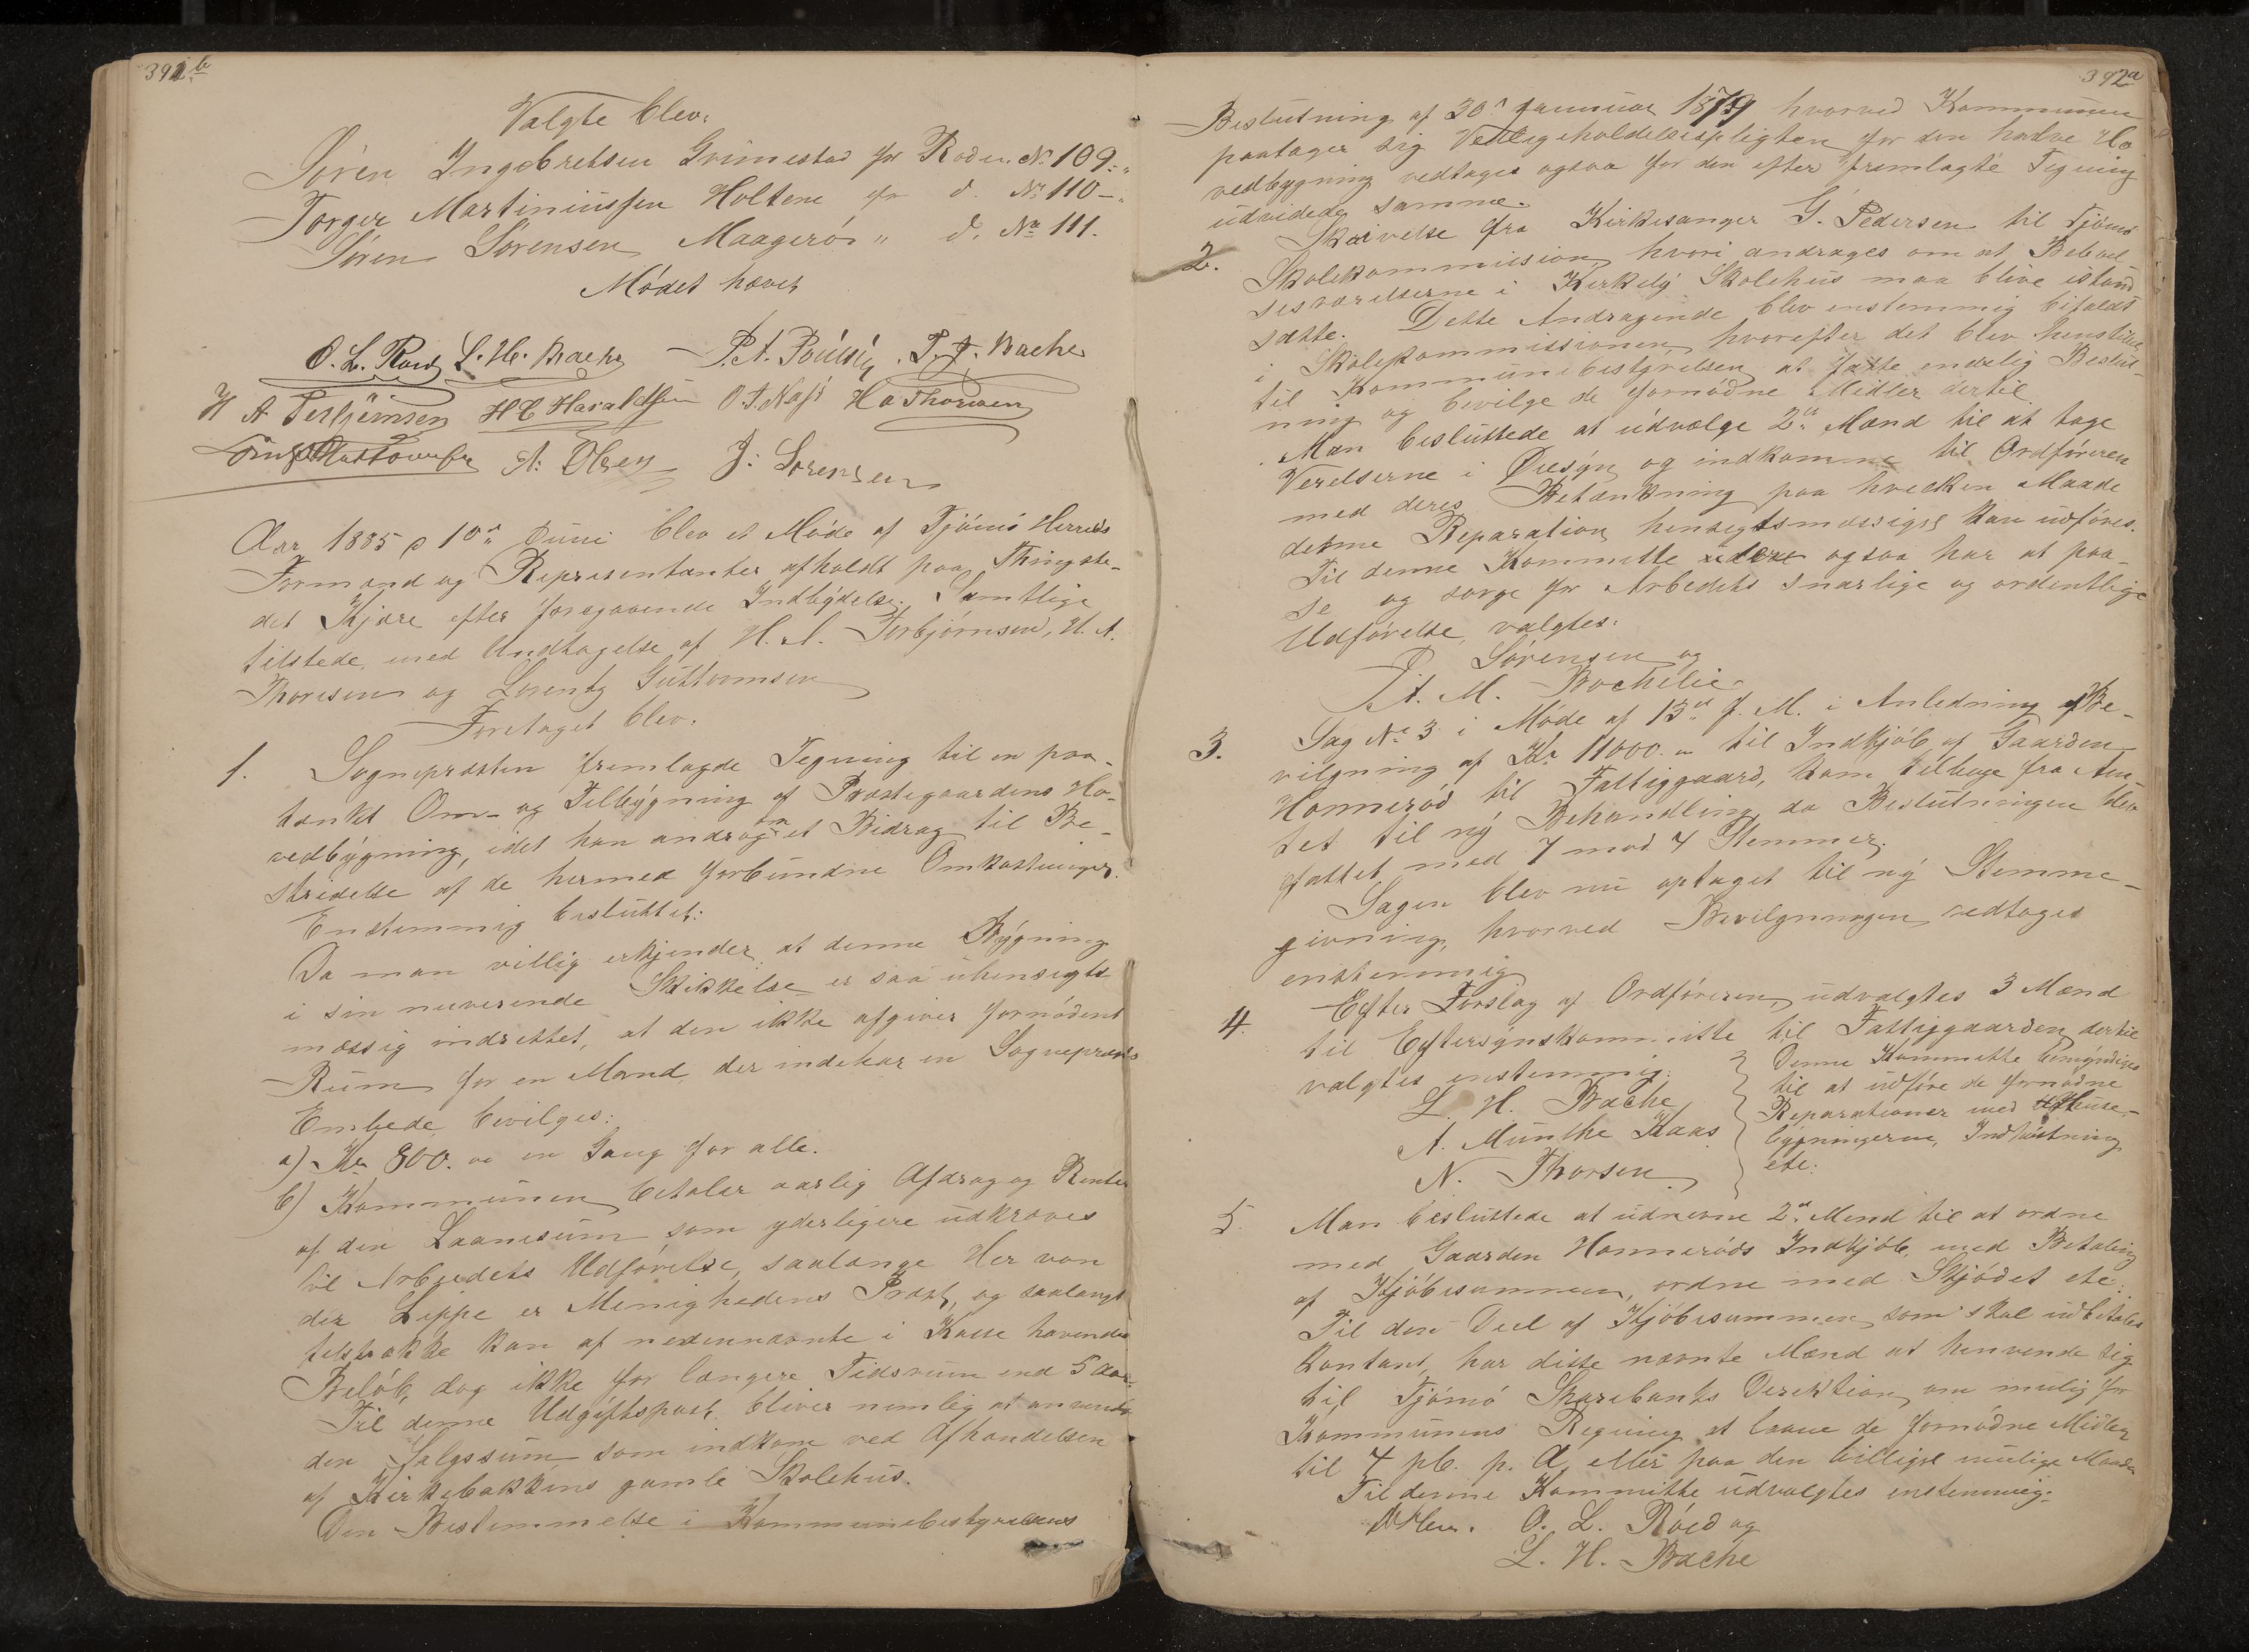 391b
Valgte blev:
Sören Ingebretsen Grimestad for Roden No 109.
Torger Martiniussen Holtene for d. No 110 -
Sören Sörensen Maagerö " d. No 111.
Mödet hævet
O. L. Röed L. H. Bache P. A. Poulsen P. J. Bache
H A Terbjørnsen H C Haraldsen O. A. H A Thorsen
A. Olsen J. Sörensen
Aar 1885 d 10de Juni blev et Möde af Tjömö Herreds
Formænd og Repræsentanter afholdt paa Thingste-
det Kjære efter foregaaende Indbydelse. Samtlige
tilstede med Undtagelse af H. A. Torbjörnsen, H. A.
Thoresen og Lorentz Guttormsen
Foretaget blev:
1. Sognepræsten fremlagde Tegning til en paa-
tænkt Om- og Tilbygning af Præstegaardens Ho-
vedbygning, idet han androg om et Bidrag til Be-
stridelse af de hermed forbundne Omkostninger.
Enstemmig besluttet:
Da man villig erkjender, at denne Bygning
i sin nuværende Skikkelse er saa uhensigts
mæssig indrettet, at den ikke afgiver fornödent
Rum for en Mand, der indehar en Sognepræsts
Embede, bevilges:
a) Kr 800. en Gang for alle.
b) Kommunen betaler aarlig Afdrag og Renter
af den Laanesum som yderligere udkræves
til Arbeidets Udförelse, saalænge Her von
der Lippe er Menighedens Præst, og saalangt
tilstrække kan af nedennævnte i Kasse havende
Belöb, dog ikke for længere Tidsrum end 5 Aar.
Til denne Udgiftspost bliver nemlig at anvende
den Salgssum, som indkom ved Afhændelsen
af Kirkebakkens gamle Skolehus.
Den Bestemmelse i Kommunebestyrelsens
392a
Beslutning af 30te Januar 1879 hvorved Kommunen
paatager sig Vedligeholdelsespligten for den halve Ho
vedbygning vedtages ogsaa for den efter fremlagte Tegning
udvidede samme.
2. Skrivelse fra Kirkesanger G. Pedersen til Tjömö
Skolekommission, hvori andrages om at Beboel
sesværelserne i Kirkely Skolehus maa blive istand
sætte. Dette Andragende blev enstemmig bifaldt
i Skolekommissionen, hvorefter det blev henstillet
til Kommunebestyrelsen at fatte endelig Beslut-
ning og bevilge de fornödne Midler dertil
Man besluttede at udvælge 2de Mænd til at tage
Værelserne i Øiesyn og indkomme til Ordföreren
med deres Betænkning paa hvilken Maade
denne Reparation hensigtsmæssigst kan udföres.
Til denne Kommitte ogsaa har at paa-
se og sörge for Arbeidets snarlige og ordentlige
Udförelse, valgtes:
J. Sörensen og
A. M. Bachelie
3. Sag No 3 i Möde af 13de f. M. i Anledning af Be-
vilgning af Kr 11000. til Indkjöb af Gaarden
Honneröd til Fattiggaard, kom tilbage fra Am
tet til ny Behandling, da Beslutningen blev
fattet med 7 mod 4 Stemmer.
Sagen blev nu optaget til ny Stemme-
givning, hvorved Bevilgningen vedtages
enstemmig
4. Efter Forslag af Ordföreren udvalgtes 3 Mænd
til Eftersynskommitte til Fattiggaarden, dertil
valgtes enstemmig:
L. H. Bache
A. Munthe Kaas
N. Thorsen
Denne Kommitte bemyndiges
til at udföre de fornödne
Reparationer med Huse-
bygningerne, Indhöstning
etc:
5. Man besluttede at udnævne 2de Mænd til at ordne
med Gaarden Honneröds Indkjöb, med Betaling
af Kjöbesummen, ordne med Skjödet etc:
Til den Deel af Kjöbesummen, som skal udbetales
kontant, har disse nævnte Mænd at henvende sig
til Tjömö Sparebanks Direktion, om mulig for
Kommunens Regning at laane de fornödne Midler
til 4 pC. p. A, eller paa den billigst mulige Maade
Til denne Kommitte udvalgtes enstemmig:
O. L. Röed og
L. H. Bache